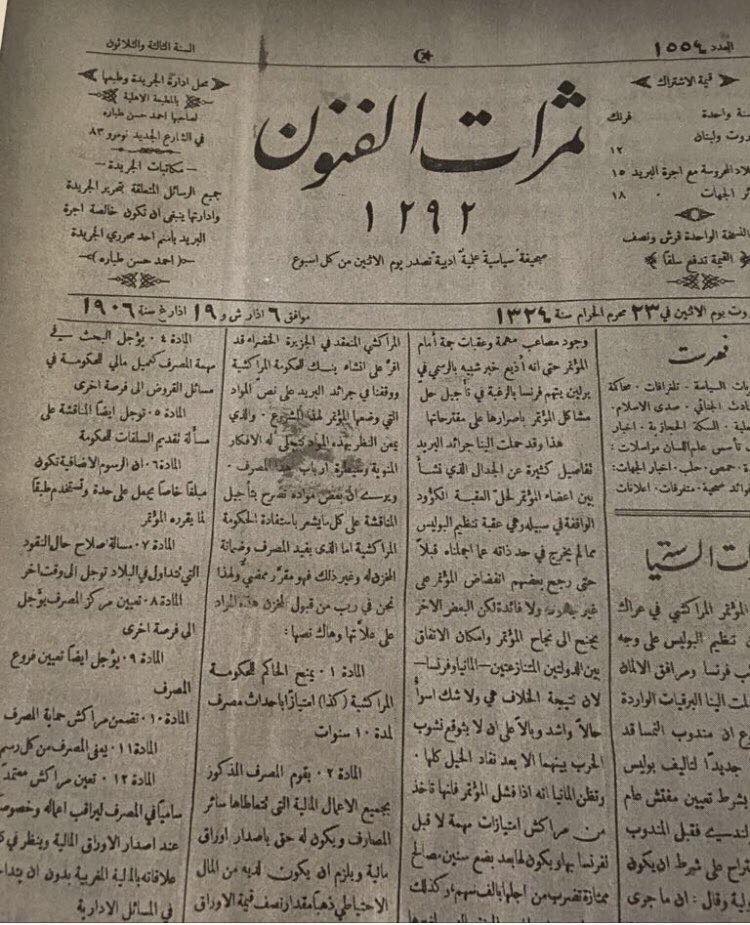 العدد ١٥٥٤
السنة الثالثة والثلاثون
قيمة الاشتراك
سنة واحدة فرنك
بيروت ولبنان
١٢
البلاد المحروسة مع اجرة البريد ١٥
سائر الجهات ١٨
النسخة الواحدة قرش ونصف
القيمة تدفع سلفاً
ثمرات الفنون
١٢٩٢
صحيفة سياسية علمية ادبية تصدر يوم الاثنين من كل اسبوع
محل ادارة الجريدة وطبعها
بالمطبعة الاهلية
لصاحبها احمد حسن طباره
في الشارع الجديد نومرو ٨٣
— مكاتبات الجريدة —
جميع الرسائل المتعلقة بتحرير الجريدة
وادارتها ينبغي ان تكون خالصة اجرة
البريد باسم احد محرري الجريدة
(احمد حسن طباره)
بيروت يوم الاثنين في ٢٣ محرم الحرام سنة ١٣٢٤
موافق ٦ اذار ش و ١٩ اذار غ سنة ١٩٠٦
فهرست
السياسة • تلغرافات • محاكة
الجناقي • صدى الاسلام •
السكة الحجازية • اخبار
تأسس عام لسان مراسلات :
حمص • حلب • اخبار الجهات :
صحية • متفرقات • اعلانات
المؤتمر المراكشي في عراك
تنظيم البوليس على وجه
فرنسا ومرافق الالمان
الينا البرقيات الواردة
ان مندوب النمسا قد
جديداً لتأليف بوليس
بشرط تعيين مفتش عام
فقبل المندوب
على شرط ان يكون
وقال : ان ما جرى
وجود مصاعب مهمة وعقبات جمة أمام
المؤتمر حتى انه أذيع خبر شبيه بالرسمي في
برلين يتهم فرنسا بالرغبة في تأجيل حل
مشاكل المؤتمر باصرارها على مقترحاتها
هذا وقد حملت الينا جرائد البريد
تفاصيل كثيرة عن الجدال الذي نشأ
بين اعضاء المؤتمر لحل العقبة الكؤود
الواقفة في سبيله وهي عقبة تنظيم البوليس
مما لم يخرج في حد ذاته عما اجملناه قبلاً
حتى رجع بعضهم انفضاض المؤتمر عن
غير ولا فائدة لكن البعض الاخر
يجنح الى نجاح المؤتمر وامكان الاتفاق
بين الدولتين المتنازعتين—المانيا وفرنسا—
لان نتيجة الخلاف هي ولا شك اسوأ
حالاً واشد وبالاً على ان لا يتوقع نشوب
الحرب بينهما الا بعد نفاد الحيل كلها •
وتظن المانيا انه اذا فشل المؤتمر فانها تأخذ
من مراكش امتيازات مهمة لا قبل
لفرنسا بها ويكون لها بعد بضع سنين مصالح
ممتازة تضرب من اجلها بالف سهم ، وكذلك
المراكشي المنعقد في الجزيرة الخضراء قد
اقر على انشاء بنك للحكومة المراكشية
ووقفنا في جرائد البريد على نص المواد
التي وضعها المؤتمر لهذا المشروع • والذي
يمعن النظر بهذه المواد تتجلى له الافكار
المنوية وسيطرة ارباب هذا المصرف •
ويرى ان بعض مواده تقترح بتأجيل
المناقشة على كل ما يشعر باستفادة الحكومة
المراكشية اما الذي يفيد المصرف وضمانة
المخزن له وغير ذلك فهو مقرر ممضي ولهذا
نحن في ريب من قبول المخزن هذه المواد
على علاّتها وهاك نصها :
المادة ١ • يمنح الحاكم للحكومة
المراكشية (كذا) امتيازاً باحداث مصرف
لمدة ١٠ سنوات
المادة ٢ • يقوم المصرف المذكور
بجميع الاعمال المالية التي تتعاطاها سائر
المصارف ويكون له حق باصدار اوراق
مالية ويلزم ان يكون لديه من المال
الاحتياطي ذهباً مقدار نصف قيمة الاوراق
المادة ٤ • يؤجل البحث في
مهمة المصرف كعميل مالي للحكومة في
مسائل القروض الى فرصة اخرى
المادة ٥ • توجل ايضاً المناقشة على
مسألة تقديم السلفات للحكومة
المادة ٦ • ان الرسوم الاضافية تكون
مبلغاً خاصاً يعمل على حدة وتستخدم طبقاً
لما يقرره المؤتمر
المادة ٧ • مسألة صلاح حال النقود
التي تتداول في البلاد توجل الى وقت اخر
المادة ٨ • تعيين مركز المصرف يؤجل
الى فرصة اخرى
المادة ٩ • يؤجل ايضاً تعيين فروع
المصرف
المادة ١٠ • تضمن مراكش حماية المصرف
المادة ١١ • يعفى المصرف من كل رسم
المادة ١٢ • تعين مراكش معتمداً
سامياً في المصرف ليراقب اعماله وخصوصاً
عند اصدار الاوراق المالية وينظر في
علاقاته بالمالية المغربية بدون ان
في المسائل الادارية